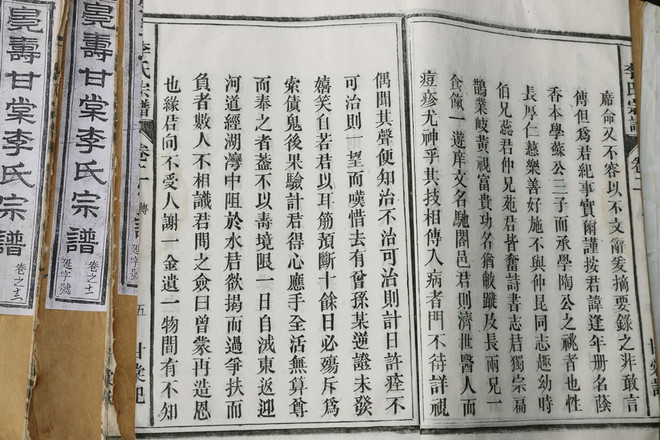 席命又不容以不文辭爰摘要錄之非敢言
傳但爲君紀事實爾謹按君諱逢年册名蔭
香本學蘇公二子而承學陶公之祧者也性
長厚仁慈樂善好施不與仲昆同志趣幼時
伯兄蕊君仲兄苑君皆奮詩書志君獨宗扁
鵲業岐黃視富貴功名猶敝蹝及長兩兄一
食餼一遊庠文名馳閤邑君則濟世醫人而
痘疹尤神乎其技相傳入病者門不待詳視
偶聞其聲便知治不治可治則計日許瘥不
可治則一望而嘆惜去有曾孫某逆證未發
嬉笑自若君以耳筋預斷十餘日必殤斥爲
索債鬼後果驗計君得心應手全活無算尊
而奉之者葢不以壽境眼一日自滅東返迎
河道經湖灣中阻於水君欲揭而過爭扶而
負者數人不相識君問之僉曰曾蒙再造恩
也緣君向不受人謝一金遺一物間有不知
李氏宗譜
卷二
傳
五
甘棠記
壽甘棠李氏宗譜
卷之
字號
壽甘棠李氏宗譜
卷之
字號